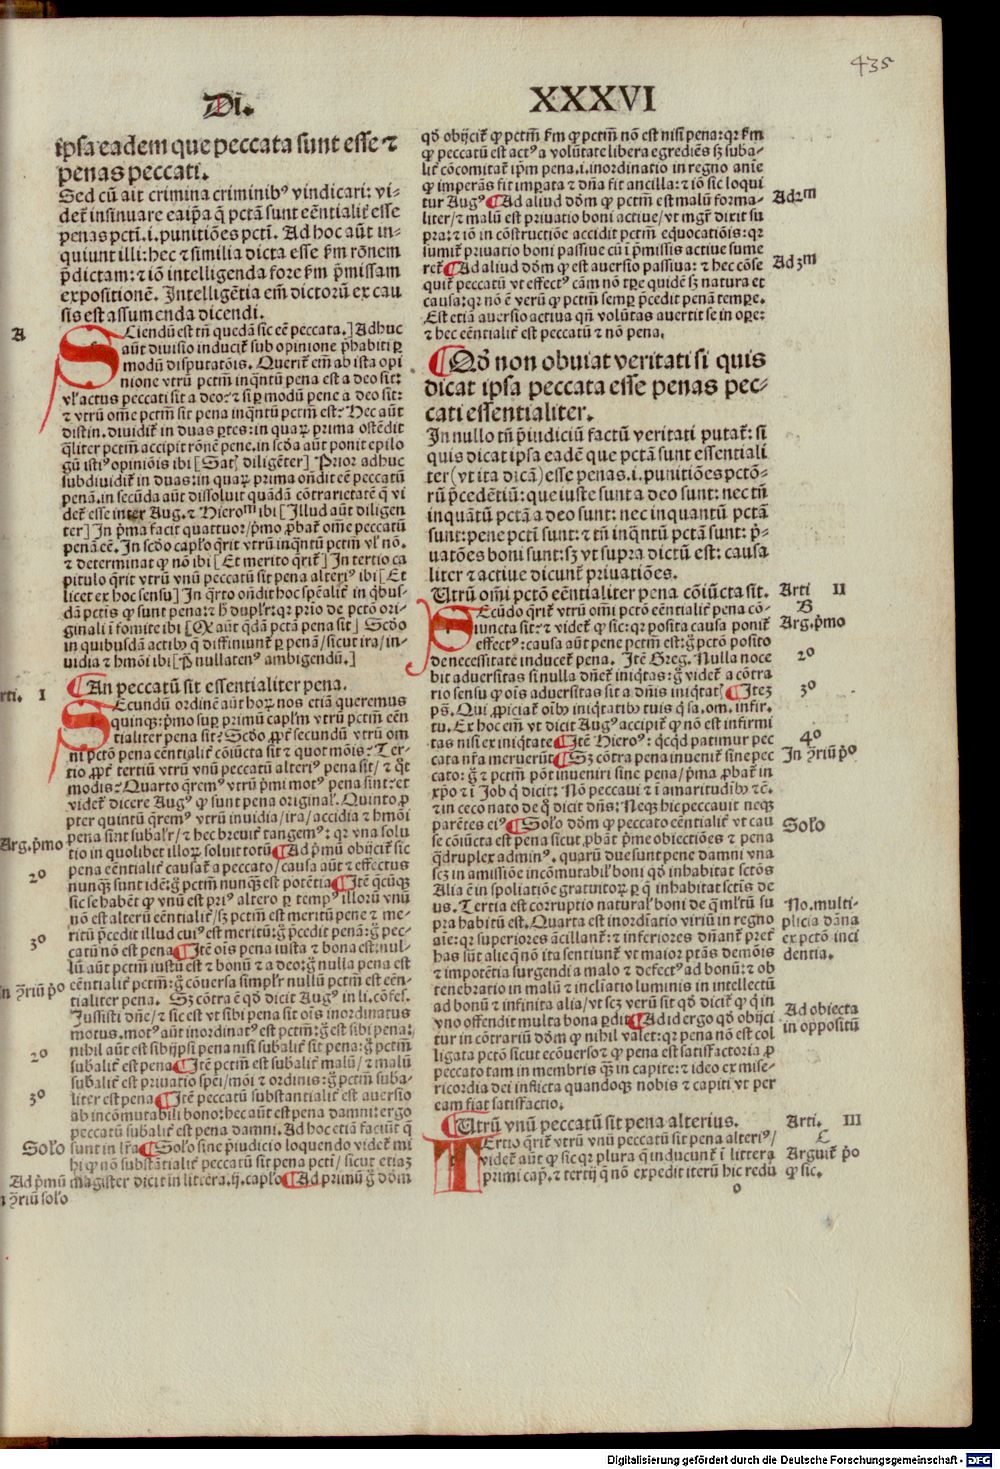 435
Di.
XXXVI
ip̄sa eadem que peccata sunt esse ⁊
penas peccati.
Sed cū ait crimina criminibꝰ vindicari: vi-
det̄ insinuare ea ip̄a q̄ pctā sunt eēntialit̄ esse
penas pctī .i. punitiões pctī. Ad hoc aūt in-
quiunt illi: hec ⁊ similia dicta esse f̄m rōnem
p̄dictam: ⁊ iō intelligenda fore f̄m p̄missam
expositionē. Intelligētia em̄ dictorū ex cau
sis est assumenda dicendi.
A
Sciendū est tn̄ quedā sic eē peccata.] Adhuc
aūt divisio inducit̄ sub opinione p̄habiti ꝑ
modū disputatōis. Querit̄ em̄ ab ista opi
nione vtrū pctm̄ inqntū pena est a deo sit:
vl̓ actus peccati sit a deo: ⁊ si ꝑ modū pene a deo sit:
⁊ vtrū om̄e pctm̄ sit pena inqntū pctm̄ est: Hec aūt
distin. dividit̄ in duas ꝑtes: in quaꝝ prima ostēdit
qliter pctm̄ accipit rōnē pene. in scd̓a aūt ponit epilo
gū istiꝰ opiniōis ibi [Satꝭ diligēter] Prior adhuc
subdividit̄ in duas: in quaꝝ prima on̄dit eē peccatū
penā. in secūda aūt dissoluit quādā cōtrarietatē q̄ vi
det̄ esse inter Aug. ⁊ Hieroᵐ ibi [Illud aūt diligen
ter] In p̄ma facit quattuor/ p̄mo ꝓbat̄ om̄e peccatū
penā eē. In scd̓o cap̄l̓o q̄rit vtrū inqntū pctm̄ vl̓ nō.
⁊ determinat ꝙ nō ibi [Et merito q̄rit̄] In tertio ca
pitulo q̄rit vtrū vnū peccatū sit pena alteriꝰ ibi [Et
licet ex hoc sensu] In q̄rto on̄dit hoc sp̄ealit̄ in q̄bus-
dā pctis ꝙ sunt pena: ⁊ h̄ dupl̓r: qꝛ prio de pctō ori-
ginali ī fomite ibi [Q aūt q̄dā pctā pena sit] Scd̓o
in quibusdā actibꝰ q̄ diffiniunt̄ ꝑ penā/ sicut ira/ in-
uidia ⁊ hmōi ibi [Pᵈ nullatenꝰ ambigendū.]
rti. I
An peccatū sit essentialiter pena.
Secundū ordinē aūt hoꝝ nos etiā queremus
quinqꝫ: p̄mo suꝑ primū capl̓m vtrū pctm̄ eēn
tialiter pena sit? Scd̓o ꝓpt̄ secundū vtrū om
ni pctō pena eēntialit̄ cōiūcta sit ⁊ quot mōis? Ter-
tio ꝓpt̄ tertiū vtrū vnū peccatū alteriꝰ pena sit/ ⁊ q̄t
modis: Quarto q̄remꝰ vtrū p̄mi motꝰ pena sint: et
videt̄ dicere Augꝰ ꝙ sunt pena original̓. Quinto ꝓ
pter quintū q̄remꝰ vtrū inuidia/ ira/ accidia ⁊ hmōi
Arg. p̄mo pena sint subal̓r/ ⁊ hec breuit̄ tangemꝰ: qꝛ vna solu
tio in quolibet illoꝝ soluit totū ¶ Ad p̄mū obijcit̄ sic
pena eēntialit̄ causat̄ a peccato/ causa aūt ⁊ effectus
2ᵒ nunqꝫ sunt idē: g̊ pctm̄ nunqꝫ est potētia ¶ Itē q̄cūqꝫ
sic se habēt ꝙ vnū est priꝰ altero ꝑ tempꝰ illorū vnū
nō est alterū eēntialit̄/ sꝫ pctm̄ est meritū pene ⁊ me-
ritū p̄cedit illud cuiꝰ est meritū: g̊ p̄cedit penā: g̊ pec-
3ᵒ catū nō est pena ¶ Itē oīs pena iusta ⁊ bona est: nul-
lū aūt pctm̄ iustū est ⁊ bonū ⁊ a deo: g̊ nulla pena est
n ꝯ̄riū p̄o eēntialit̄ pctm̄: g̊ cōuersa simpl̓r nullū pctm̄ est eēn-
tialiter pena. Sꝫ cōtra ē qd̓ dicit Augꝰ in li. cōfes.
Jussisti dn̄e/ ⁊ sic est vt sibi pena sit oīs inordinatus
motus. motꝰ aūt inordinatꝰ est pctm̄: g̊ est sibi pena:
nihil aūt est sibijpsi pena nisi subalit̄ sit pena: g̊ pctm̄
2ᵒ subalit̄ est pena ¶ Itē pctm̄ est subalit̄ malū/ ⁊ malū
subalit̄ est privatio sp̄ei/ mōi ⁊ ordinis: g̊ pctm̄ suba-
3ᵒ liter est pena ¶ Itē peccatū substantialit̄ est auersio
ab incōmutabili bono: hec aūt est pena damni: ergo
peccatū subalit̄ est pena damni. Ad hoc etiā faciūt q̄
Solo sunt in lr̄a. ¶ Solo sine p̄iudicio loquendo videt̄ mi
hi ꝙ nō substātialit̄ peccatū sit pena pcti/ sicut etiaꝫ
Ad p̄mū magister dicit in littera. ij. cap̄l̓o ¶ Ad primū g̊ dd̄m
n ꝯ̄riū solo
qd̓ obijcit̄ ꝙ pctm̄ f̄m ꝙ pctm̄ nō est nisi pena: qꝛ f̄m
ꝙ peccatū est actꝰ a volūtate libera egrediēs sꝫ suba-
lit̄ cōcomitat̄ ip̄m pena .i. inordinatio in regno anīe
ꝙ imperās fit imꝑata ⁊ dn̄a fit ancilla: ⁊ iō sic loqui
tur Augꝰ ¶ Ad aliud dd̄m ꝙ pctm̄ est malū forma-
liter/ ⁊ malū est privatio boni actiue/ vt mgr̄ dixit su
pra: ⁊ iō in cōstructiōe accidit pctm̄ equocatiōis: qꝛ
sumit̄ privatio boni passiue cū ī p̄missis actiue sume
ret̄ ¶ Ad aliud dd̄m ꝙ est auersio passiua: ⁊ hec cōse
quit̄ peccatū vt effectꝰ cām nō tꝑe quidē sꝫ natura et
causa: qꝛ nō ē verū ꝙ pctm̄ semꝑ p̄cedit penā temꝑe.
Est etiā auersio actiua qn̄ volūtas auertit se in oꝑe:
⁊ hec eēntialit̄ est peccatū ⁊ nō pena.
Ad 2ᵐ
Ad 3ᵐ
¶ Qd̓ non obuiat veritati si quis
dicat ipsa peccata esse penas pec-
cati essentialiter.
In nullo tn̄ p̄iudiciū factū veritati putat̄: si
quis dicat ipsa eadē que pctā sunt essentiali
ter (vt ita dicā) esse penas .i. punitiões pctō-
rū p̄cedētiū: que iuste sunt a deo sunt: nec tn̄
inquātū pctā a deo sunt: nec inquantū pctā
sunt: pene pctī sunt: ⁊ tn̄ inq̄ntū pctā sunt: p̄-
uatōes boni sunt: sꝫ vt supra dictū est: causa
liter ⁊ actiue dicunt̄ priuatiões.
Utrū om̄i pctō eēntialiter pena cōiūcta sit.
Arti II
B
Secūdo q̄rit̄ vtrū om̄i pctō eēntialit̄ pena cō-
iuncta sit: ⁊ videt̄ ꝙ sic: qꝛ posita causa ponit̄
effectꝰ: causa aūt pene pctm̄ est: g̊ pctō posito
de necessitate inducet̄ pena. Itē Greg. Nulla noce
bit adversitas si nulla dn̄et̄ iniq̄tas: g̊ videt̄ a cōtra
rio sensu ꝙ oīs adversitas sit a dn̄is iniq̄tatꝭ ¶ Iteꝫ
pꝰ. Qui ꝓpiciat̄ oībꝰ iniq̄tatibꝰ tuis q̄ sa. om. infir.
tu. Ex hoc em̄ vt dicit Augꝰ accipit̄ ꝙ nō est infirmi
tas nisi ex iniq̄tate ¶ Itē Hieroꝰ: q̄cq̄d patimur pec
cata nr̄a meruerūt ¶ Sꝫ cōtra pena inuenit̄ sine pec
cato: g̊ ⁊ pctm̄ pōt inveniri sine pena/ p̄ma ꝓbat̄ in
xp̄o ⁊ ī Job q̄ dicit: Nō peccaui ⁊ ī amaritudībꝰ ⁊c̄.
⁊ in ceco nato de q̊ dicit dn̄s: Neqꝫ hic peccauit neqꝫ
parētes eiꝰ ¶ Solo dd̄m ꝙ peccato eēntialit̄ vt cau
se cōiūcta est pena sicut ꝓbāt p̄me obiectiões ⁊ pena
q̄druplex ad minꝰ. quarū due sunt pene damni vna
scꝫ in amissiōe incōmutabil̓ boni qd̓ inhabitat sctōs
Alia ē in spoliatiōe gratuitoꝝ ꝑ q̄ inhabitat sctōs de
us. Tertia est corruptio natural̓ boni de q̄ ml̓tū su
pra habitū est. Quarta est inordīatio viriū in regno
aīe: qꝛ superiores ācillant̄: ⁊ inferiores dn̄ant̄ pret̄
has sūt alie q̄ nō ita sentiunt̄ vt maior ptās demōis
⁊ impotētia surgendi a malo ⁊ defectꝰ ad bonū: ⁊ ob
tenebratio in malū ⁊ inclīatio luminis in intellectū
ad bonū ⁊ infinita alia/ vt scꝫ verū sit qd̓ dicit̄ ꝙ q̄ in
vno offendit multa bona ꝑdit ¶ Ad id ergo qd̓ obijci
tur in cōtrariū dd̄m ꝙ nihil valet: qꝛ pena nō est col
ligata pctō sicut ecōuerso ⁊ ꝙ pena est satisfactoria ꝓ
peccato tam in membris qꝫ in capite: ⁊ ideo ex mise-
ricordia dei inflicta quandoqꝫ nobis ⁊ capiti vt per
eam fiat satisfactio.
Arg. p̄mo
2ᵒ
3ᵒ
4ᵒ
In ꝯ̄riū p̄o
Solo
No. multi-
plicia dāna
ex pctō inci
dentia.
Ad obiecta
in oppositū
¶ Utrū vnū peccatū sit pena alterius.
Arti. III
C
Tertio q̄rit̄ vtrū vnū peccatū sit pena alteriꝰ/
videt̄ aūt ꝙ sic qꝛ plura q̄ inducunt̄ ī littera
primi cap̄. ⁊ tertij q̄ nō expedit iterū hic redu
Arguit̄ p̄o
ꝙ sic.
o
Digitalisierung gefördert durch die Deutsche Forschungsgemeinschaft - DFG